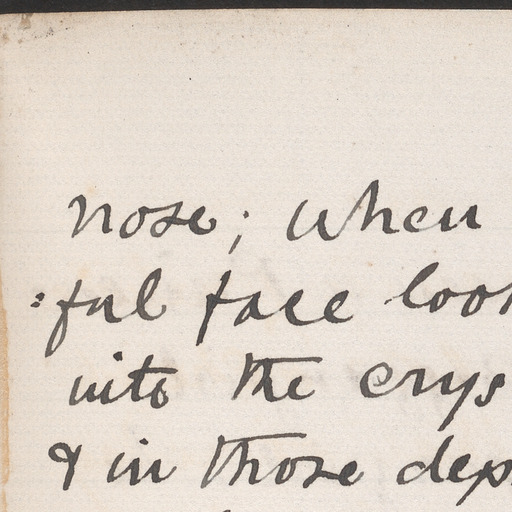 nose; when
:ful face look
into the crys
& in those dep